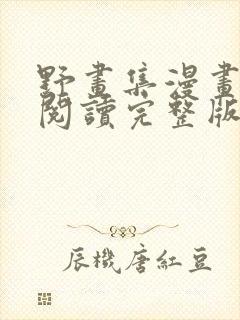 野畫集漫畫
閱讀完整版
辰機唐紅豆